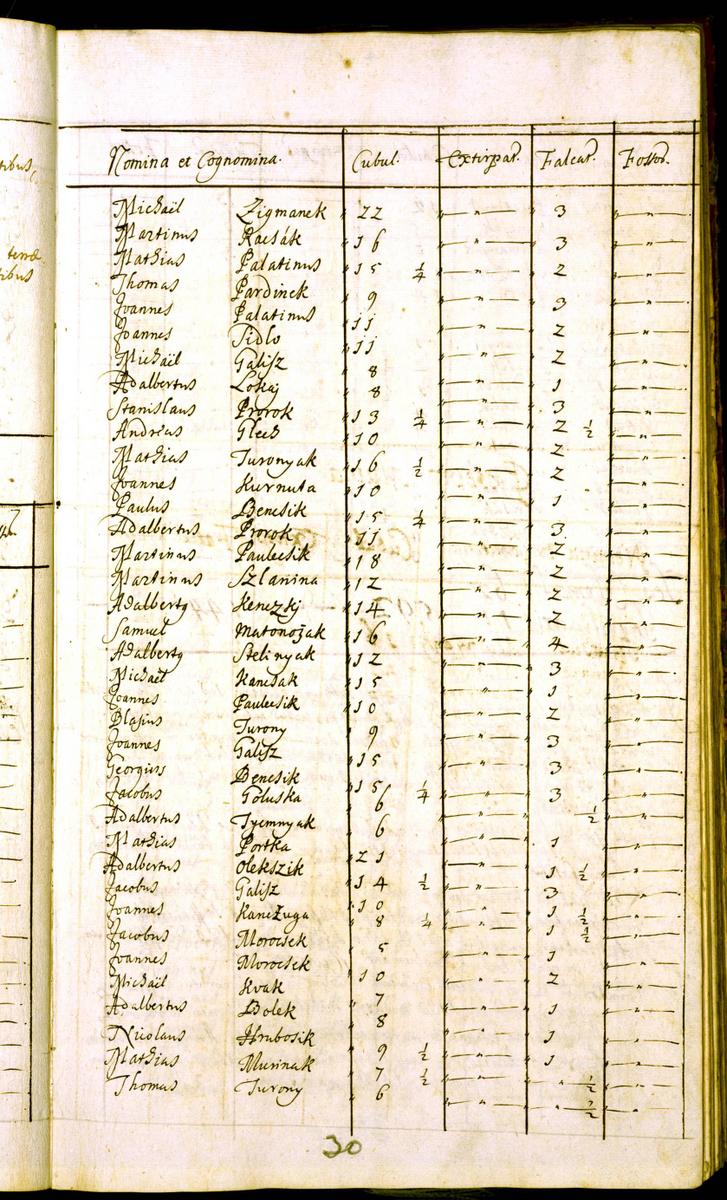 Nomina et Cognomina. Cubul. Extirpat. Falcat. Fossor.
Michaël Zigmanek " 22 " 3 "
Martinus Racsák " 16 " 3 "
Mathias Palatinus " 15 ¼ " 2 "
Thomas Pardinek " 9 " 3 "
Joannes Palatinus " 11 " 2 "
Joannes Sidlo " 11 " 2 "
Michaël Galisz " 8 " 1 "
Adalbertus Lokaj " 8 " 3 "
Stanislaus Prorok " 13 ¼ " 2 ½ "
Andreas Glech " 10 " 2 "
Mathias Turonyak " 16 ½ " 2 "
Joannes Kurnuta " 10 " 1 "
Paulus Bencsik " 15 ¼ " 3 "
Adalbertus Prorok " 11 " 2 "
Martinus Paulecsik " 18 " 2 "
Martinus Szlanina " 12 " 2 "
Adalbertg Kenezkj " 14 " 2 "
Samuel Matonožak " 16 " 4 "
Adalbertg Stelinyak " 12 " 3 "
Michaël Kanchak " 15 " 1 "
Joannes Paulecsik " 10 " 2 "
Blasius Turony " 9 " 3 "
Joannes Galisz " 15 " 3 "
Georgius Bencsik " 15 ¼ " 3 "
Jacobus Goluska " 6 " ½ "
Adalbertus Tyemnyak " 6 " 1 "
Mathias Portka " 21 " 1 ½ "
Adalbertus Olekszik " 14 ½ " 3 "
Jacobus Galisz " 10 " 1 ½ "
Joannes Kanczuga " 8 ¼ " 1 ½ "
Jacobus Morocsek " 5 " 1 "
Joannes Morocsek " 10 " 2 "
Michaël Kvak " 7 " 1 "
Adalbertus Bolek " 8 " 1 "
Nicolaus Hrubosik " 9 ½ " 1 "
Mathias Murinak " 7 ½ " " ½ "
Thomas Turony " 6 " " ½ "
30